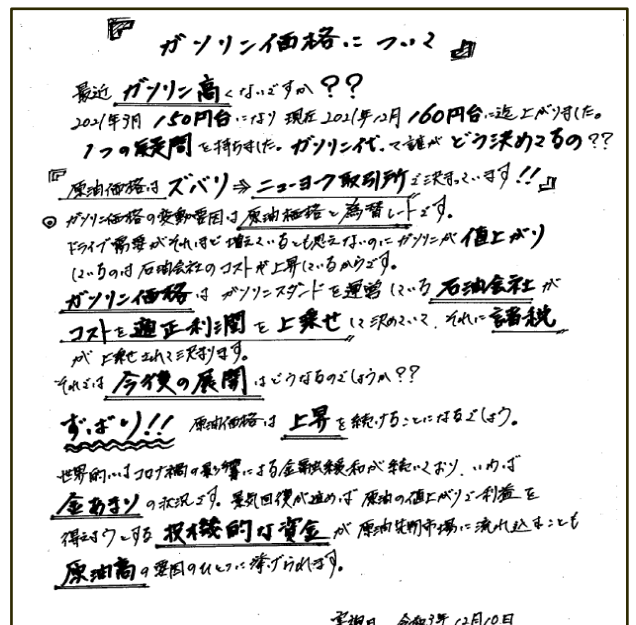 『ガソリン価格について』
最近 ガソリン高くないですか??
2021年3月 150円台になり 現在2021年12月 160円台に迄上がりました。
1つの疑問を持ちました。ガソリン代って誰がどう決めてるの??
『原油価格はズバリ⇒ニューヨーク取引所で決まっています!!』
◎ ガソリン価格の変動要因は原油価格と為替レートです。
ドライブ需要がそれほど増えているとも思えないのにガソリンが値上がり
しているのは石油会社のコストが上昇しているからです。
ガソリン価格はガソリンスタンドを運営している石油会社が
コストを適正利潤を上乗せして決めていて、それに諸税
が上乗せされて決まります。
それでは今後の展開はどうなるのでしょうか??
ずばり!! 原油価格は上昇を続けることになるでしょう。
世界的にはコロナ禍の影響による金融緩和が続いており、いわば
金あまりの状況です。景気回復が進めば原油の値上がりで利益を
得ようとする投機的な資金が原油先物市場に流れ込むことも
原油高の要因のひとつに挙げられます。
令和3年12月10日